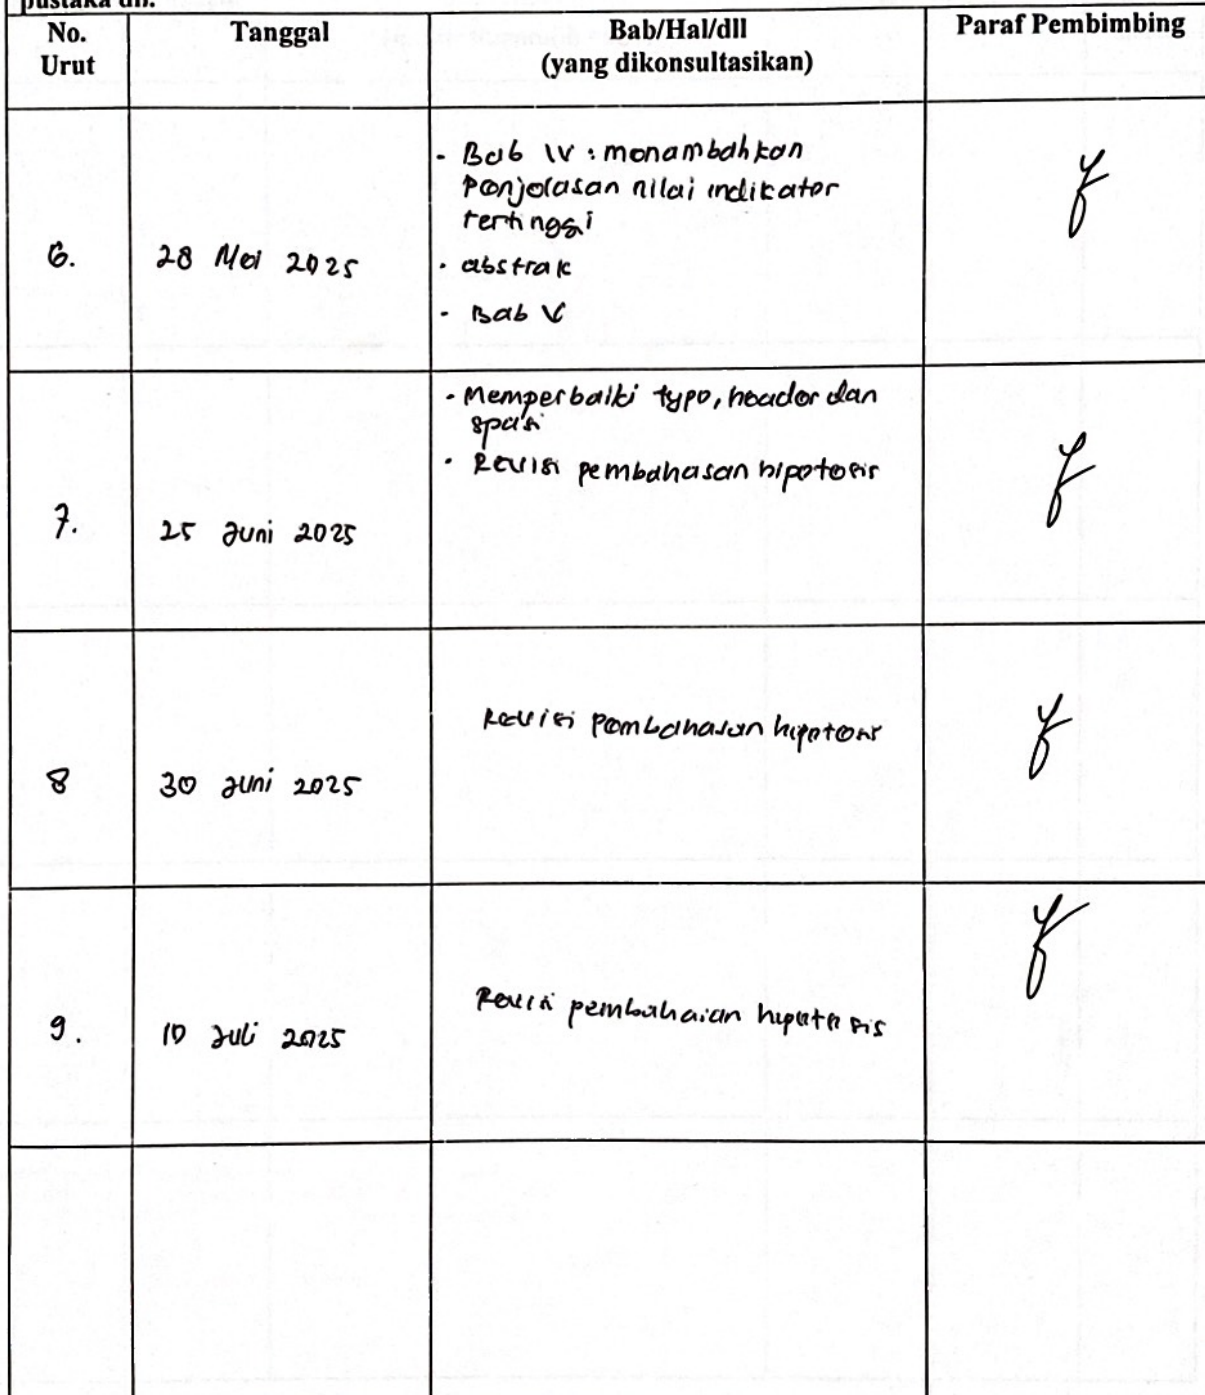 pustaka dll.
No. Urut
Tanggal
Bab/Hal/dll
(yang dikonsultasikan)
Paraf Pembimbing
6.
28 Mei 2025
- Bab IV : menambahkan
penjelasan nilai indikator
tertinggi
- abstrak
- Bab V
7.
25 Juni 2025
- Memperbaiki typo, header dan
spasi
- Revisi pembahasan hipotesis
8
30 Juni 2025
Revisi pembahasan hipotesis
9.
10 Juli 2025
Revisi pembahasan hipotesis